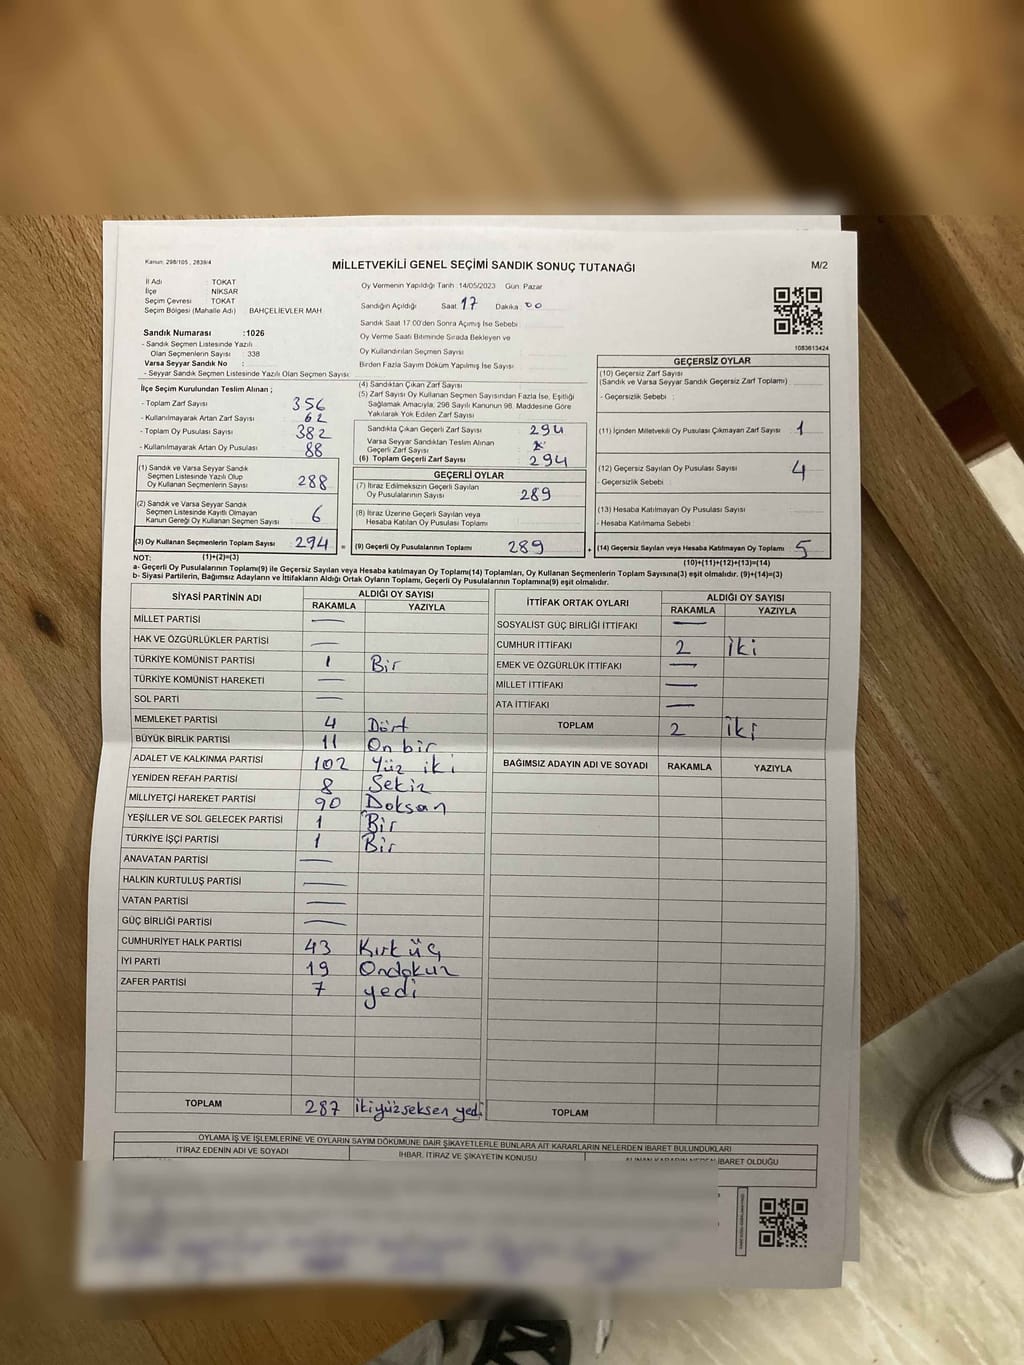 Kanun: 298/105 , 2839/4
MİLLETVEKİLİ GENEL SEÇİMİ SANDIK SONUÇ TUTANAĞI
M/2
İl Adı TOKAT
İlçe NİKSAR
Seçim Çevresi TOKAT
Seçim Bölgesi (Mahalle Adı) : BAHÇELİEVLER MAH
Sandık Numarası :1026
- Sandık Seçmen Listesinde Yazılı
Olan Seçmenlerin Sayısı : 338
Varsa Seyyar Sandık No :
- Seyyar Sandık Seçmen Listesinde Yazılı Olan Seçmen Sayısı:
Oy Vermenin Yapıldığı Tarih :14/05/2023 Gün: Pazar
Sandığın Açıldığı Saat: 17 Dakika: 00
Sandık Saat 17:00'den Sonra Açımış İse Sebebi
Oy Verme Saati Bitiminde Sırada Bekleyen ve
Oy Kullandırılan Seçmen Sayısı
Birden Fazla Sayım Döküm Yapılmış İse Sayısı
1083613424
İlçe Seçim Kurulundan Teslim Alınan ;
- Toplam Zarf Sayısı 356
- Kullanılmayarak Artan Zarf Sayısı 62
- Toplam Oy Pusulası Sayısı 382
- Kullanılmayarak Artan Oy Pusulası 88
(1) Sandık ve Varsa Seyyar Sandık
Seçmen Listesinde Yazılı Olup
Oy Kullanan Seçmenlerin Sayısı 288
(2) Sandık ve Varsa Seyyar Sandık
Seçmen Listesinde Kayıtlı Olmayan
Kanun Gereği Oy Kullanan Seçmen Sayısı 6
(3) Oy Kullanan Seçmenlerin Toplam Sayısı 294 =
(4) Sandıktan Çıkan Zarf Sayısı
(5) Zarf Sayısı Oy Kullanan Seçmen Sayısından Fazla İse, Eşitliği
Sağlamak Amacıyla, 298 Sayılı Kanunun 98. Maddesine Göre
Yakılarak Yok Edilen Zarf Sayısı
Sandıkta Çıkan Geçerli Zarf Sayısı 294
Varsa Seyyar Sandıktan Teslim Alınan
Geçerli Zarf Sayısı
(6) Toplam Geçerli Zarf Sayısı 294
GEÇERLİ OYLAR
(7) İtiraz Edilmeksizin Geçerli Sayılan
Oy Pusulalarının Sayısı 289
(8) İtiraz Üzerine Geçerli Sayılan veya
Hesaba Katılan Oy Pusulası Toplamı
(9) Geçerli Oy Pusulalarının Toplamı 289 +
GEÇERSİZ OYLAR
(10) Geçersiz Zarf Sayısı
(Sandık ve Varsa Seyyar Sandık Geçersiz Zarf Toplamı)
- Geçersizlik Sebebi :
(11) İçinden Milletvekili Oy Pusulası Çıkmayan Zarf Sayısı 1
(12) Geçersiz Sayılan Oy Pusulası Sayısı 4
- Geçersizlik Sebebi
(13) Hesaba Katılmayan Oy Pusulası Sayısı
- Hesaba Katılmama Sebebi
(14) Geçersiz Sayılan veya Hesaba Katılmayan Oy Toplamı 5
NOT: (1)+(2)=(3)
(10)+(11)+(12)+(13)=(14)
a- Geçerli Oy Pusulalarının Toplamı(9) ile Geçersiz Sayılan veya Hesaba katılmayan Oy Toplamı(14) Toplamları, Oy Kullanan Seçmenlerin Toplam Sayısına(3) eşit olmalıdır. (9)+(14)=(3)
b- Siyasi Partilerin, Bağımsız Adayların ve İttifakların Aldığı Ortak Oyların Toplamı, Geçerli Oy Pusulalarının Toplamına(9) eşit olmalıdır.
SİYASİ PARTİNİN ADI ALDIĞI OY SAYISI
RAKAMLA YAZIYLA
MİLLET PARTİSİ —
HAK VE ÖZGÜRLÜKLER PARTİSİ —
TÜRKİYE KOMÜNİST PARTİSİ 1 Bir
TÜRKİYE KOMÜNİST HAREKETİ —
SOL PARTİ —
MEMLEKET PARTİSİ 4 Dört
BÜYÜK BİRLİK PARTİSİ 11 On bir
ADALET VE KALKINMA PARTİSİ 102 Yüz iki
YENİDEN REFAH PARTİSİ 8 Sekiz
MİLLİYETÇİ HAREKET PARTİSİ 90 Doksan
YEŞİLLER VE SOL GELECEK PARTİSİ 1 Bir
TÜRKİYE İŞÇİ PARTİSİ 1 Bir
ANAVATAN PARTİSİ —
HALKIN KURTULUŞ PARTİSİ —
VATAN PARTİSİ —
GÜÇ BİRLİĞİ PARTİSİ —
CUMHURİYET HALK PARTİSİ 43 Kırk üç
İYİ PARTİ 19 Ondokuz
ZAFER PARTİSİ 7 yedi
TOPLAM 287 ikiyüzseksen yedi
İTTİFAK ORTAK OYLARI ALDIĞI OY SAYISI
RAKAMLA YAZIYLA
SOSYALİST GÜÇ BİRLİĞİ İTTİFAKI —
CUMHUR İTTİFAKI 2 İki
EMEK VE ÖZGÜRLÜK İTTİFAKI —
MİLLET İTTİFAKI —
ATA İTTİFAKI —
TOPLAM 2 İki
BAĞIMSIZ ADAYIN ADI VE SOYADI RAKAMLA YAZIYLA
TOPLAM
OYLAMA İŞ VE İŞLEMLERİNE VE OYLARIN SAYIM DÖKÜMÜNE DAİR ŞİKAYETLERLE BUNLARA AİT KARARLARIN NELERDEN İBARET BULUNDUKLARI
İTİRAZ EDENİN ADI VE SOYADI İHBAR, İTİRAZ VE ŞİKAYETİN KONUSU ALINAN KARARIN NEDEN İBARET OLDUĞU